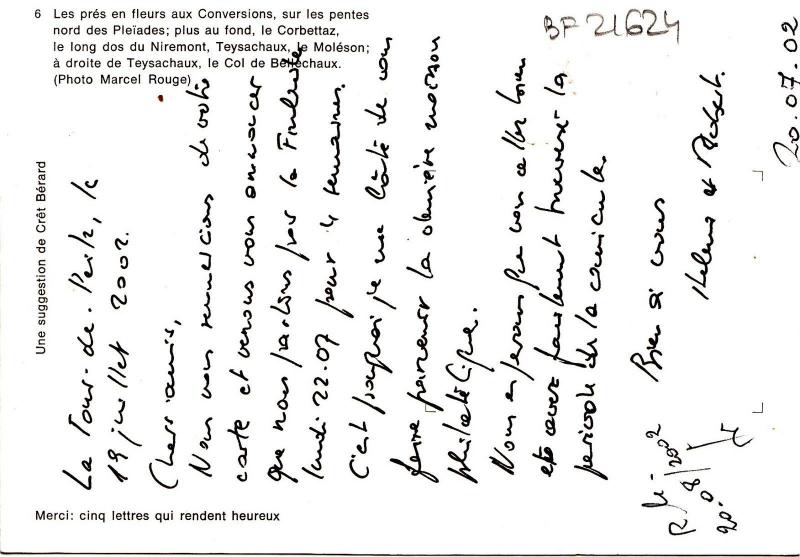 6 Les prés en fleurs aux Conversions, sur les pentes
nord des Pleïades; plus au fond, le Corbettaz,
le long dos du Niremont, Teysachaux, le Moléson;
à droite de Teysachaux, le Col de Belléchaux.
(Photo Marcel Rouge)
BF 21624
20.07.02
Une suggestion de Crêt Bérard
La Tour-de-Peilz, le
19 juillet 2002.
Chers amis,
Nous vous remercions de votre
carte et venons vous annoncer
que nous partons pour la Finlande
lundi 22.07 pour 4 semaines.
C'est pourquoi je me hâte de vous
faire parvenir la dernière moisson
philatélique.
Nous espérons que vous allez bien
et avez facilement traversé la
période de la canicule.
Bien à vous
Helena et Robert.
20.08/2002
Merci: cinq lettres qui rendent heureux